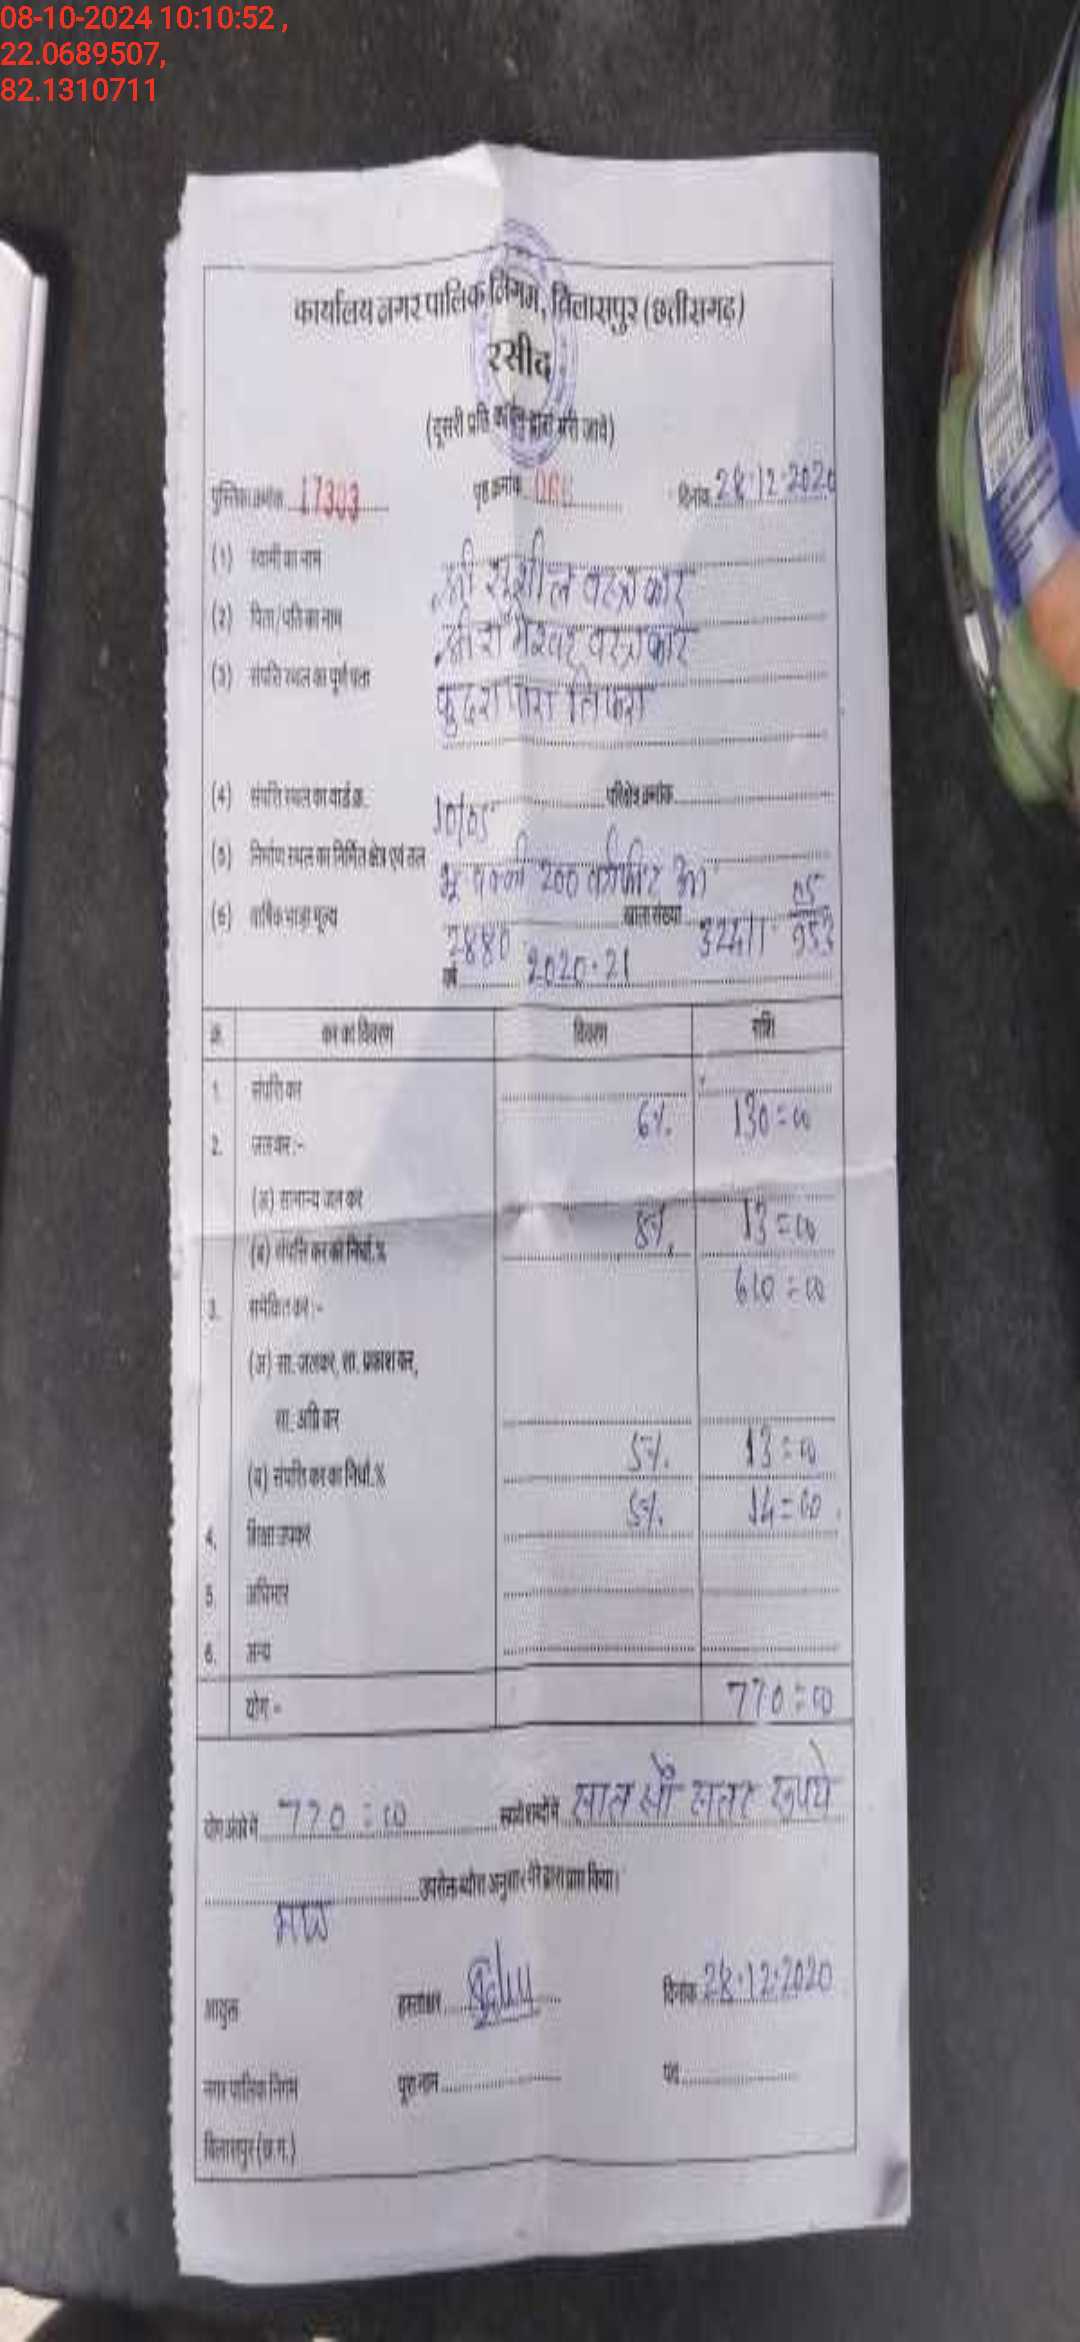 08-10-2024 10:10:52 ,
22.0689507,
82.1310711
कार्यालय नगर पालिक निगम, बिलासपुर (छत्तीसगढ़)
रसीद
(दूसरी प्रति कार्बन द्वारा भरी जावे)
पुस्तिका क्रमांक 17303 पृष्ठ क्रमांक दिनांक 28.12.2020
(1) स्वामी का नाम श्री सुशील वस्त्रकार
(2) पिता/पति का नाम श्री रामेश्वर वस्त्रकार
(3) संपत्ति स्थल का पूर्ण पता कुदरापारा तिफरा
(4) संपत्ति स्थल का वार्ड क्र. 10/05 परिक्षेत्र क्रमांक
(5) निर्माण स्थल का निर्मित क्षेत्र एवं तल भू पक्की 200 वर्गफीट
(6) वार्षिक भाड़ा मूल्य 2880 खाता संख्या 05
वर्ष 2020-21
क्र. कर का विवरण विवरण राशि
1. संपत्ति कर 6%. 130=00
2. जलकर :-
(अ) सामान्य जल कर
(ब) संपत्ति कर का निर्धा.% 8%. 13=00
3. समेकित कर :- 600=00
(अ) सा. जलकर, सा. प्रकाश कर,
सा. अग्नि कर
(ब) संपत्ति कर का निर्धा.% 5%. 13=00
4. शिक्षा उपकर 5%. 14=00
5. अधिभार
6. अन्य
योग - 770=00
योग अंकों में 770=00 रूपये शब्दों में सात सौ सत्तर रूपये
उपरोक्त ब्यौरा अनुसार मेरे द्वारा प्राप्त किया।
मात्र
आयुक्त हस्ताक्षर दिनांक 28.12.2020
नगर पालिक निगम पूरा नाम पद
बिलासपुर (छ.ग.)